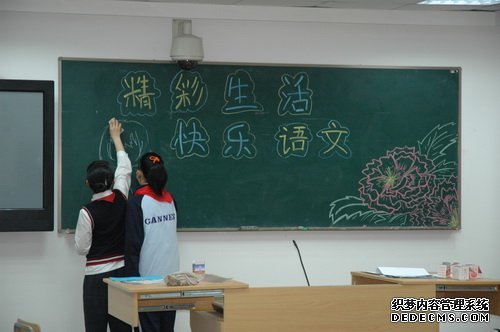 精彩生活
快乐语文
CANNES
织梦内容管理系统
DEDECMS.COM